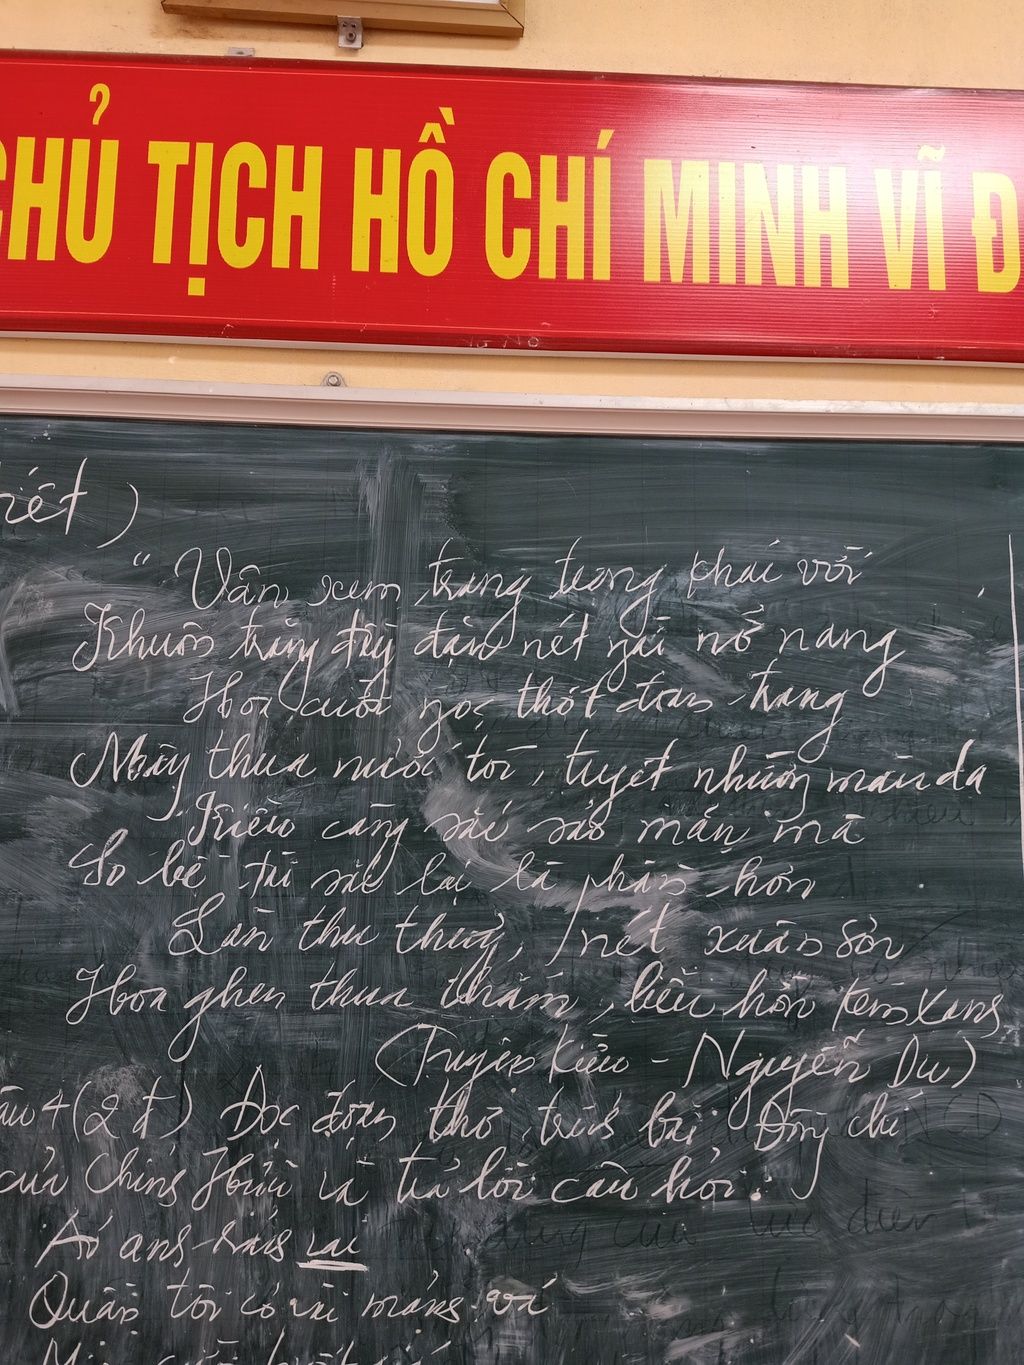 CHỦ TỊCH HỒ CHÍ MINH VĨ Đ
iết)
"Vân xem trang trọng khác vời
Khuôn trăng đầy đặn nét ngài nở nang
Hoa cười ngọc thốt đoan trang
Mây thua nước tóc, tuyết nhường màu da
Kiều càng sắc sảo mặn mà
So bề tài sắc lại là phần hơn
Làn thu thuỷ, nét xuân sơn
Hoa ghen thua thắm, liễu hờn kém xanh
(Truyện Kiều - Nguyễn Du)
âu 4 (2 đ) Đọc đoạn thơ trích bài Đồng chí
của Chính Hữu và trả lời câu hỏi:
Áo anh rách vai
Quần tôi có vài mảnh vá